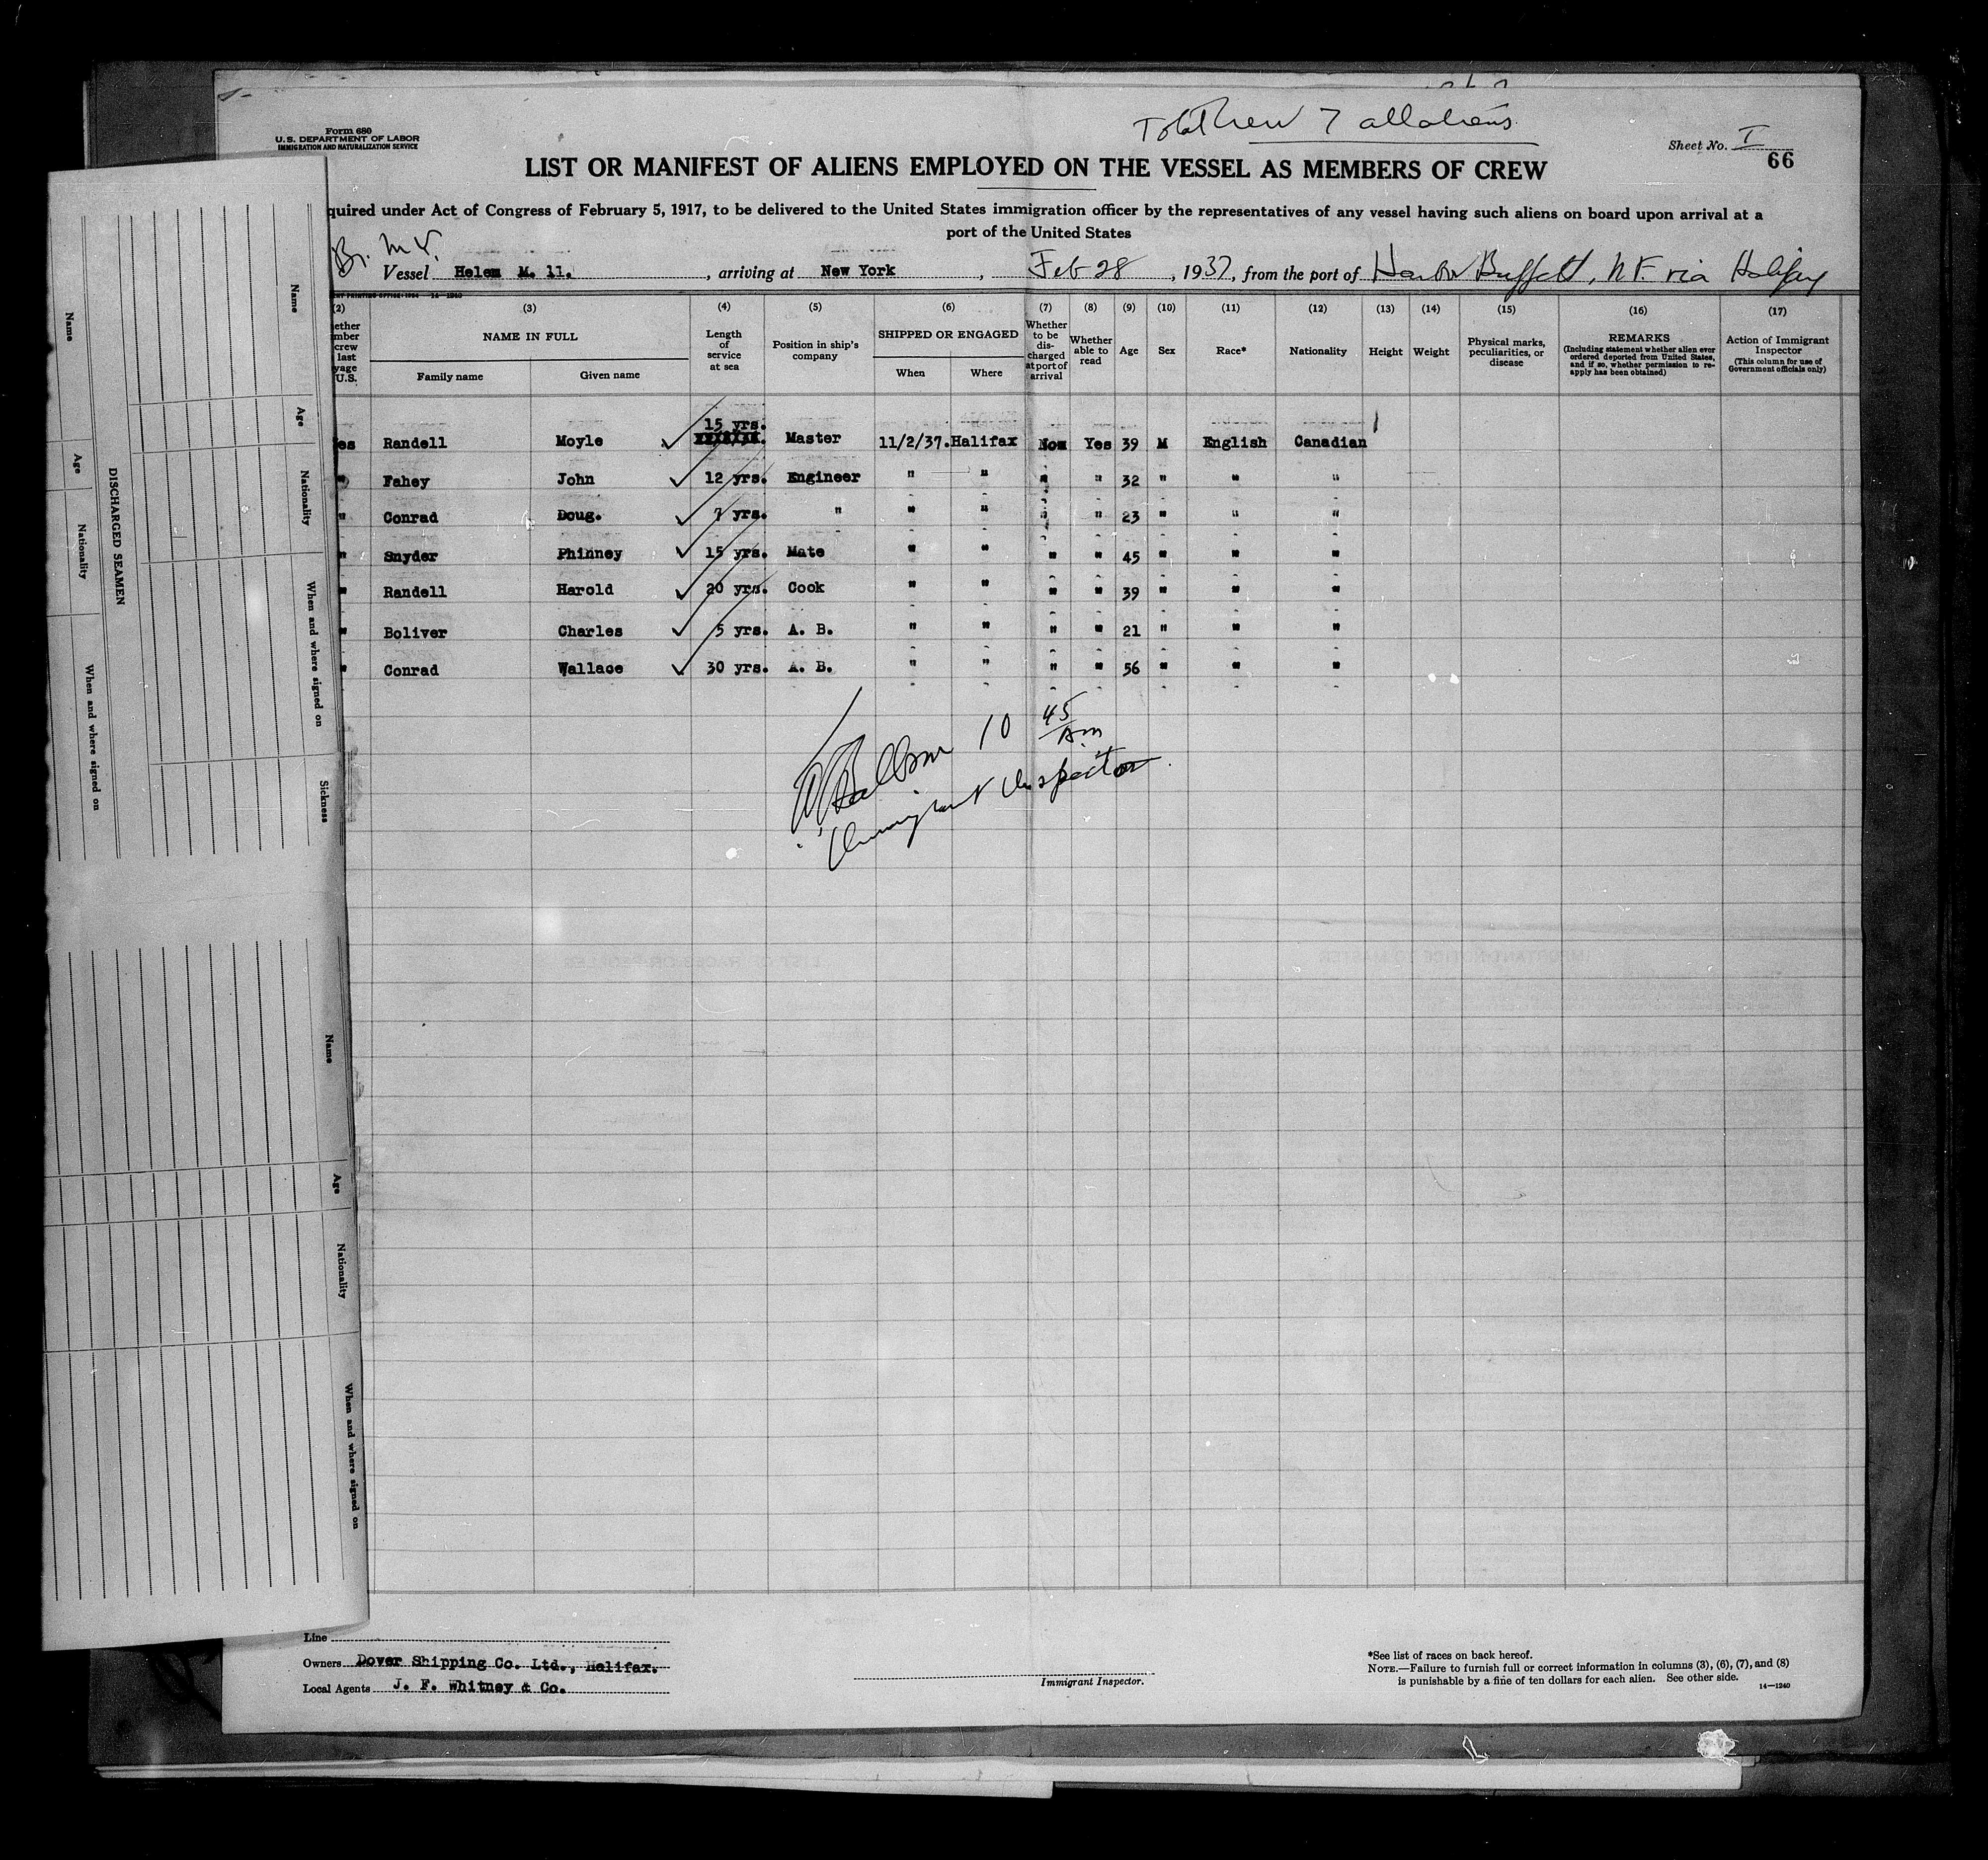 Total Crew 7 all aliens
Form 680
U.S. DEPARTMENT OF LABOR
IMMIGRATION AND NATURALIZATION SERVICE
Sheet No. I
66
LIST OR MANIFEST OF ALIENS EMPLOYED ON THE VESSEL AS MEMBERS OF CREW
quired under Act of Congress of February 5, 1917, to be delivered to the United States immigration officer by the representatives of any vessel having such aliens on board upon arrival at a
port of the United States
Br. M V.
Vessel Helen M. 11. , arriving at New York , Feb 28 , 1937, from the port of Harbor Buffett, N F. via Halifax
(2) (3) (4) (5) (6) (7) (8) (9) (10) (11) (12) (13) (14) (15) (16) (17)
ether
mber
crew
last
yage
U.S.
NAME IN FULL
Family name Given name
Length
of
service
at sea
Position in ship's
company
SHIPPED OR ENGAGED
When Where
Whether
to be
dis-
charged
at port of
arrival
Whether
able to
read
Age
Sex
Race*
Nationality
Height
Weight
Physical marks,
peculiarities, or
disease
REMARKS
(Including statement whether alien ever
ordered deported from United States,
and if so, whether permission to re-
apply has been obtained)
Action of Immigrant
Inspector
(This column for use of
Government officials only)
15 yrs.
es Randell Moyle Master 11/2/37. Halifax Yes 39 M English Canadian
" Fahey John 12 yrs. Engineer " " " " 32 " " "
" Conrad Doug. 7 yrs. " " " " " 23 " " "
" Snyder Phinney 15 yrs. Mate " " " " 45 " " "
" Randell Harold 20 yrs. Cook " " " " 39 " " "
" Boliver Charles 5 yrs. A. B. " " " " 21 " " "
" Conrad Wallace 30 yrs. A. B. " " " " 56 " " "
10 45 Am
Immigrant Inspector.
DISCHARGED SEAMEN
Name Age Nationality When and where signed on
Name Age Nationality When and where signed on Sickness
Name Age Nationality When and where signed on
Line
Owners Dover Shipping Co. Ltd., Halifax.
Local Agents J. F. Whitney & Co.
Immigrant Inspector.
*See list of races on back hereof.
NOTE.—Failure to furnish full or correct information in columns (3), (6), (7), and (8)
is punishable by a fine of ten dollars for each alien. See other side.
14—1240